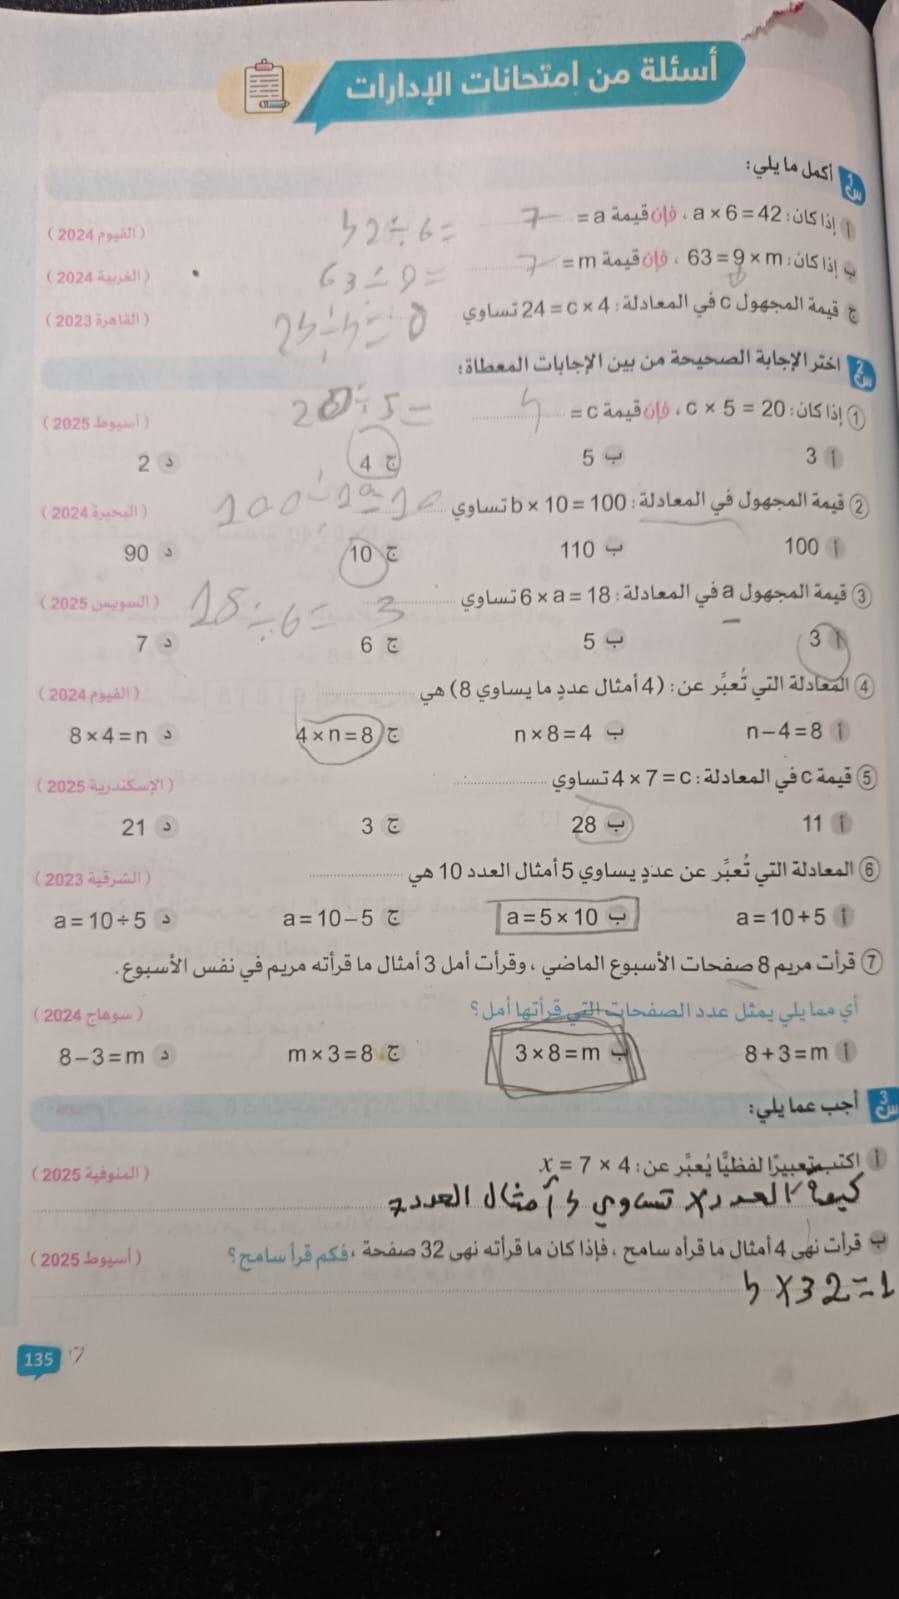 أسئلة من امتحانات الإدارات
س1 أكمل ما يلي:
أ إذا كان: a × 6 = 42 ، فإن قيمة a = 7 (الفيوم 2024)
42 ÷ 6 =
ب إذا كان: 63 = 9 × m ، فإن قيمة m = 7 (الغربية 2024)
63 ÷ 9 =
ج قيمة المجهول c في المعادلة: 24 = c × 4 تساوي (القاهرة 2023)
24 ÷ 4 =
س2 اختر الإجابة الصحيحة من بين الإجابات المعطاة:
1 إذا كان: c × 5 = 20 ، فإن قيمة c = 4 (أسيوط 2025)
20 ÷ 5 =
أ 3 ب 5 ج 4 د 2
2 قيمة المجهول في المعادلة: b × 10 = 100 تساوي (البحيرة 2024)
100 ÷ 10 = 10
أ 100 ب 110 ج 10 د 90
3 قيمة المجهول a في المعادلة: 6 × a = 18 تساوي (السويس 2025)
18 ÷ 6 = 3
أ 3 ب 5 ج 6 د 7
4 المعادلة التي تُعبِّر عن: (4 أمثال عددٍ ما يساوي 8) هي (الفيوم 2024)
أ n – 4 = 8 ب n × 8 = 4 ج 4 × n = 8 د 8 × 4 = n
5 قيمة c في المعادلة: 4 × 7 = c تساوي (الإسكندرية 2025)
أ 11 ب 28 ج 3 د 21
6 المعادلة التي تُعبِّر عن عددٍ يساوي 5 أمثال العدد 10 هي (الشرقية 2023)
أ a = 10 + 5 ب a = 5 × 10 ج a = 10 – 5 د a = 10 ÷ 5
7 قرأت مريم 8 صفحات الأسبوع الماضي ، وقرأت أمل 3 أمثال ما قرأته مريم في نفس الأسبوع.
أي مما يلي يمثل عدد الصفحات التي قرأتها أمل؟ (سوهاج 2024)
أ 8 + 3 = m ب 3 × 8 = m ج m × 3 = 8 د 8 – 3 = m
س3 أجب عما يلي:
أ اكتب تعبيرًا لفظيًّا يُعبِّر عن: x = 7 × 4 (المنوفية 2025)
العدد x تساوي 4 أمثال العدد 7
ب قرأت نهى 4 أمثال ما قرأه سامح ، فإذا كان ما قرأته نهى 32 صفحة ، فكم قرأ سامح؟ (أسيوط 2025)
4 × 32 = 1
135